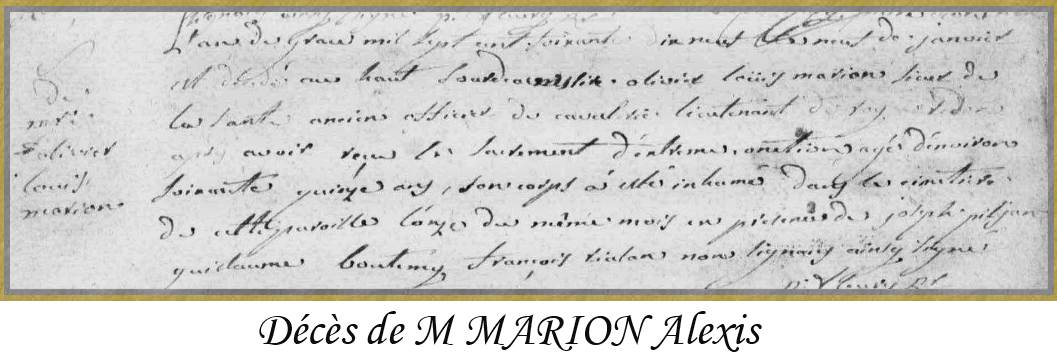 L'an de grace mil sept cent soixante dix neuf le neuf de janvier
est décédé au haut olivier loüis marion sieur de
la sante ancien officier de cavalrie lieutenant de roy
apres avoir reçu le sacrement d'extreme onction agé d'environ
soixante quinze ans, son corps a esté inhumé dans le cimetiere
de cette paroisse l'onze du même mois en présence de joseph
guillaume boutemy françois rialan non signans ainsy signé
de
mre
olivier
louis
marion
Décès de M MARION Alexis